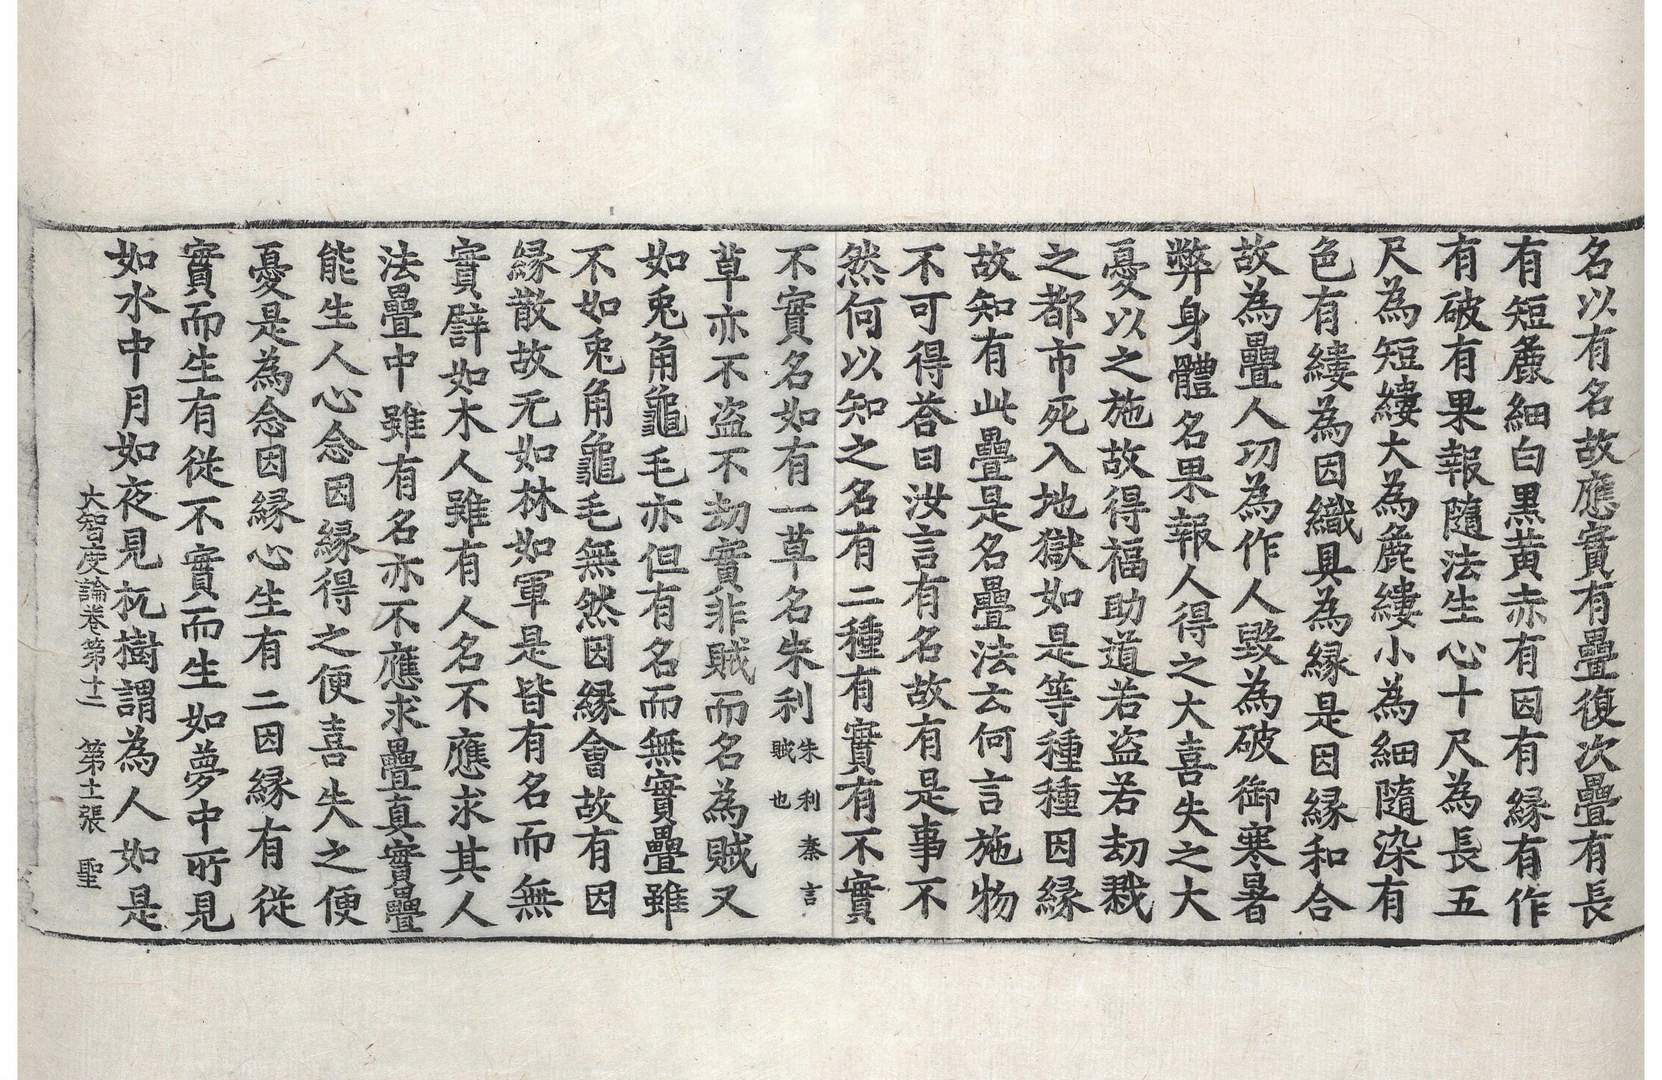 名以有名故應實有疊復次疊有長
有短麁細白黑黄赤有因有縁有作
有破有果報隨法生心十尺為長五
尺為短縷大為麁縷小為細隨染有
色有縷為因織具為縁是因縁和合
故為疊人功為作人毀為破御寒暑
弊身體名果報人得之大喜失之大
憂以之施故得福助道若盗若劫戮
之都市死入地獄如是等種種因縁
故知有此疊是名疊法云何言施物
不可得荅曰汝言有名故有是事不
然何以知之名有二種有實有不實
不實名如有一草名朱利朱利秦言賊也
草亦不盗不劫實非賊而名為賊又
如兎角龜毛亦但有名而無實疊雖
不如兎角龜毛無然因縁會故有因
縁散故无如林如軍是皆有名而無
實譬如木人雖有人名不應求其人
法疊中雖有名亦不應求疊真實疊
能生人心念因縁得之便喜失之便
憂是為念因縁心生有二因縁有從
實而生有從不實而生如夢中所見
如水中月如夜見杌樹謂為人如是
大智度論卷第十二 第十二張 聖